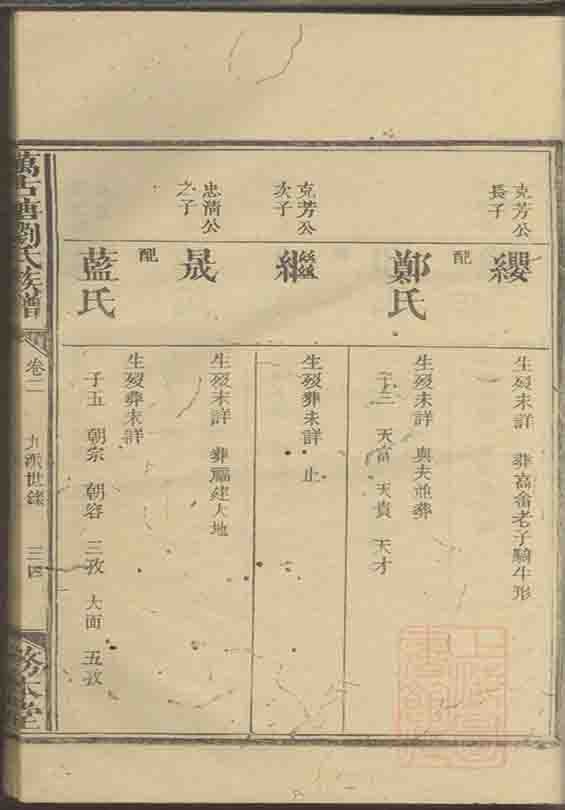 克芳公
長子
纓
生歿未詳 葬高畬老子騎牛形
配
鄭氏
生歿未詳 與夫並葬
子三 天富 天貴 天才
克芳公
次子
繼
生歿葬未詳 止
忠清公
之子
晟
生歿未詳 葬福建大地
配
藍氏
生歿葬未詳
子五 朝宗 朝容 三孜 大面 五孜
萬古塘劉氏族譜
卷二
九派世錄
務本堂